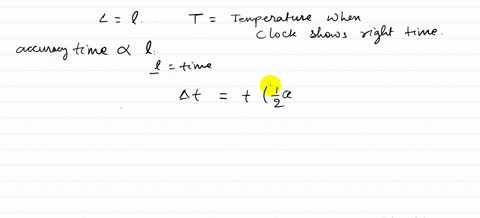 L = l. T = Temperature when
Clock shows right time.
accuracy time ∝ l.
l = time
Δt = t (½α